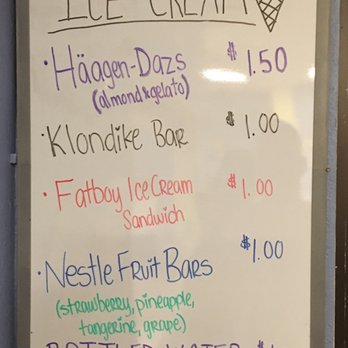 ICE CREAM
· Häagen-Dazs $1.50
(almond & gelato)
· Klondike Bar $1.00
· Fatboy Ice Cream $1.00
Sandwich
· Nestle Fruit Bars $1.00
(strawberry, pineapple,
tangerine, grape)
BOTTLED WATER